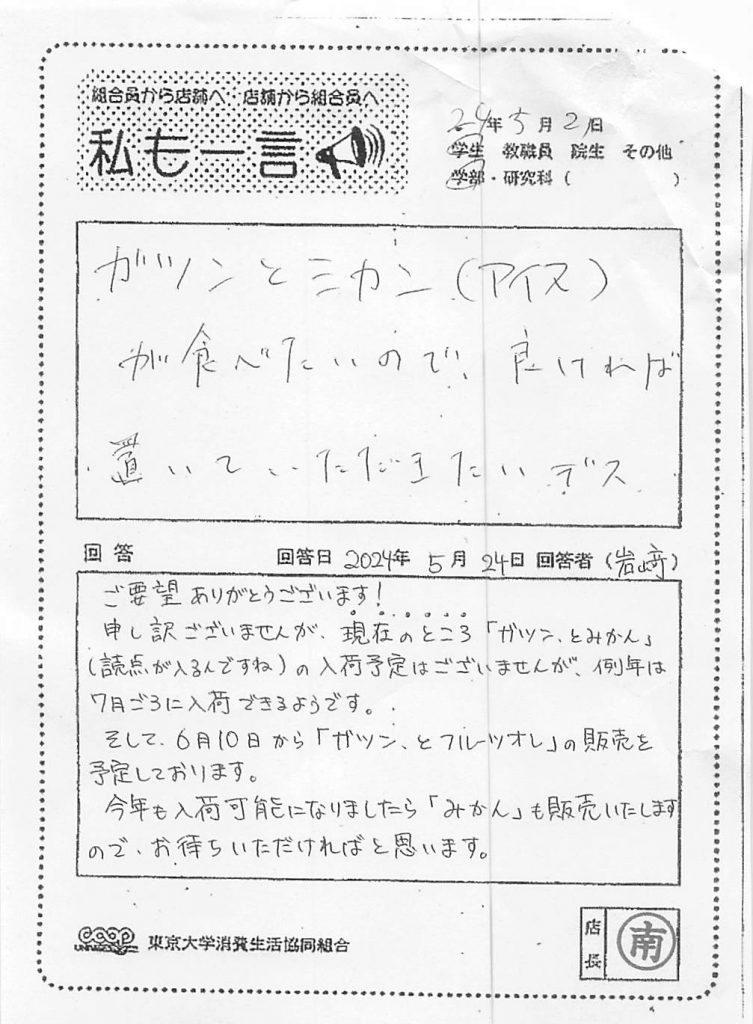 組合員から店舗へ 店舗から組合員へ
私も一言
24年5月21日
学生 教職員 院生 その他
学部・研究科( )
ガツンとミカン(アイス)
が食べたいので、良ければ
置いていただきたいデス
回答 回答日 2024年 5月 24日 回答者(岩﨑)
ご要望ありがとうございます!
申し訳ございませんが、現在のところ「ガツン、とみかん」
(読点が入るんですね)の入荷予定はございませんが、例年は
7月ごろに入荷できるようです。
そして、6月10日から「ガツン、とフルーツオレ」の販売を
予定しております。
今年も入荷可能になりましたら「みかん」も販売いたします
ので、お待ちいただければと思います。
coop 東京大学消費生活協同組合
店長 南